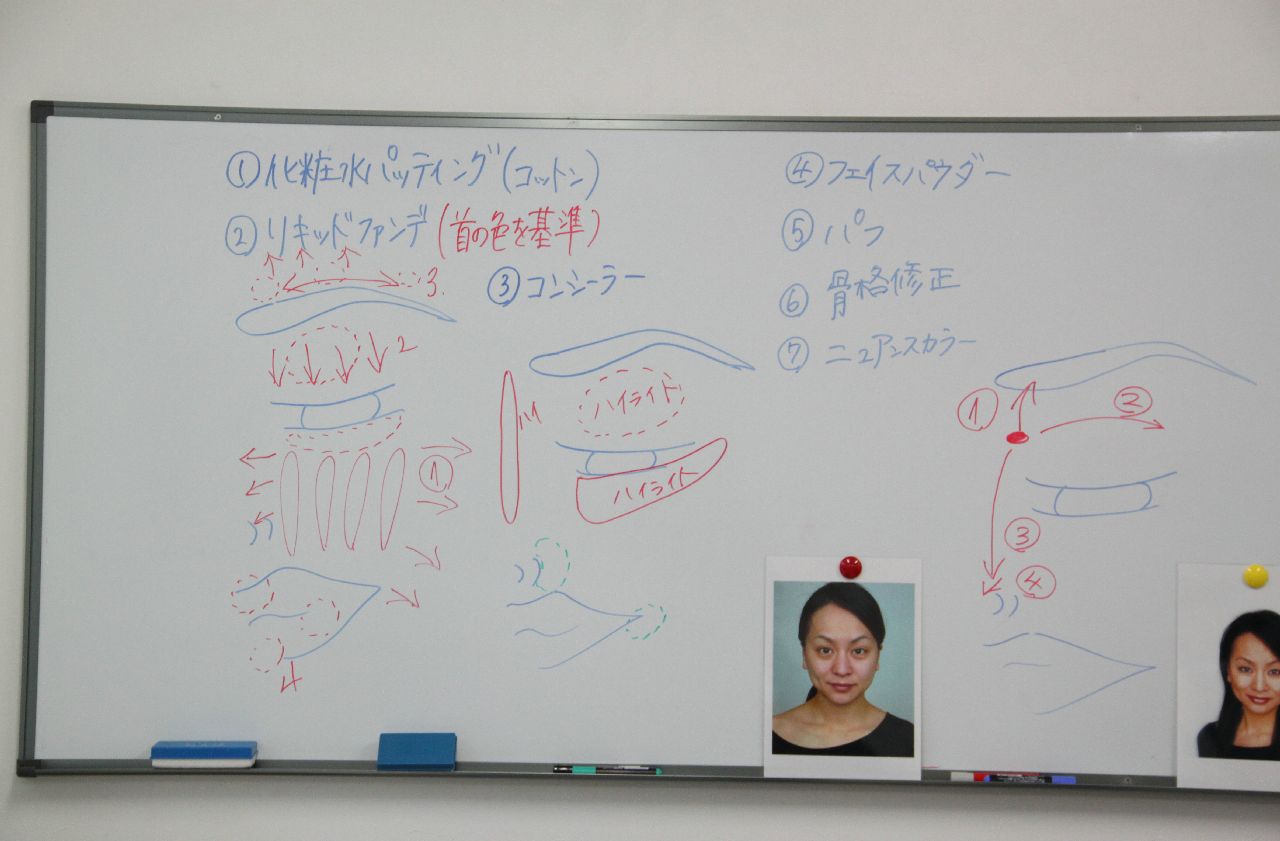 ①化粧水パッティング(コットン)
②リキッドファンデ(首の色を基準)
3.
2
①
4
③コンシーラー
ハイ
ハイライト
ハイライト
④フェイスパウダー
⑤パフ
⑥骨格修正
⑦ニュアンスカラー
①
②
③
④